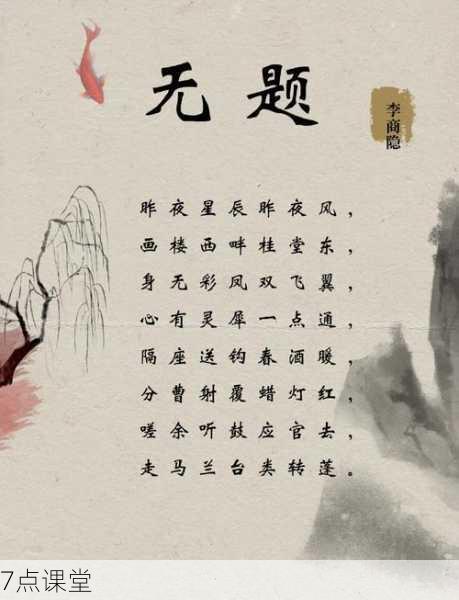 无题
李商隐
昨夜星辰昨夜风，
画楼西畔桂堂东，
身无彩凤双飞翼，
心有灵犀一点通，
隔座送钩春酒暖，
分曹射覆蜡灯红，
嗟余听鼓应官去，
走马兰台类转蓬。
7点课堂